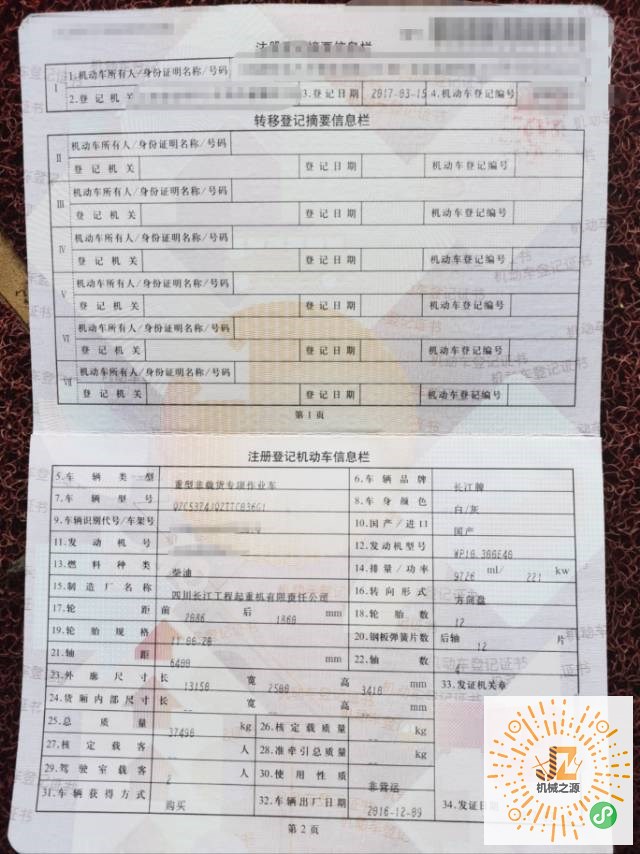 注册 摘要信息栏
I 1.机动车所有人/身份证明名称/号码
2.登记机关 3.登记日期 2017-03-15 4.机动车登记编号
转移登记摘要信息栏
II 机动车所有人/身份证明名称/号码
登记机关 登记日期 机动车登记编号
III 机动车所有人/身份证明名称/号码
登记机关 登记日期 机动车登记编号
IV 机动车所有人/身份证明名称/号码
登记机关 登记日期 机动车登记编号
V 机动车所有人/身份证明名称/号码
登记机关 登记日期 机动车登记编号
VI 机动车所有人/身份证明名称/号码
登记机关 登记日期 机动车登记编号
VII 机动车所有人/身份证明名称/号码
登记机关 登记日期 机动车登记编号
第1页
注册登记机动车信息栏
5.车辆类型 重型非载货专项作业车 6.车辆品牌 长江牌
7.车辆型号 8.车身颜色 白/灰
9.车辆识别代号/车架号 10.国产/进口 国产
11.发动机号 12.发动机型号
13.燃料种类 柴油 14.排量/功率 9726 ml/ 221 kw
15.制造厂名称 四川长江工程起重机有限责任公司 16.转向形式 方向盘
17.轮距 前 2086 后 1860 mm 18.轮胎数 12
19.轮胎规格 11.00-20 20.钢板弹簧片数 后轴 12 片
21.轴距 6400 mm 22.轴数 4
23.外廓尺寸 长 13150 宽 2500 高 3410 mm 33.发证机关章
24.货厢内部尺寸 长 -- 宽 -- 高 -- mm
25.总质量 37490 kg 26.核定载质量 -- kg
27.核定载客 -- 人 28.准牵引总质量 -- kg
29.驾驶室载客 2 人 30.使用性质 非营运
31.车辆获得方式 购买 32.车辆出厂日期 2016-12-09 34.发证日期
第2页
JZ
机械之源